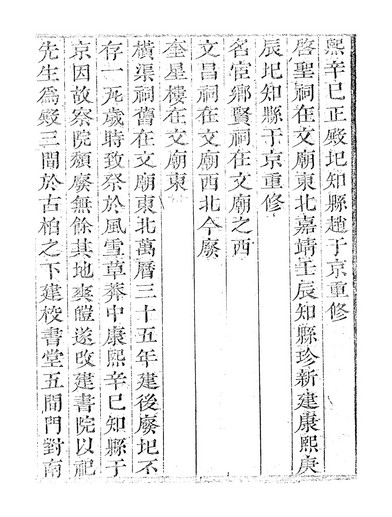 熙辛巳正殿圮知縣趙于京重修
啓聖祠在文廟東北嘉靖壬辰知縣珍新建康熙庚
辰圮知縣于京重修
名宦鄉賢祠在文廟之西
文昌祠在文廟西北今廢
奎星樓在文廟東
橫渠祠舊在文廟東北萬曆三十五年建後廢圮不
存一死歲時致祭於風雪草莽中康熙辛巳知縣于
京因故察院頹廢無餘其地爽塏遂改建書院以祀
先生為殿三間於古柏之下建校書堂五間門對南